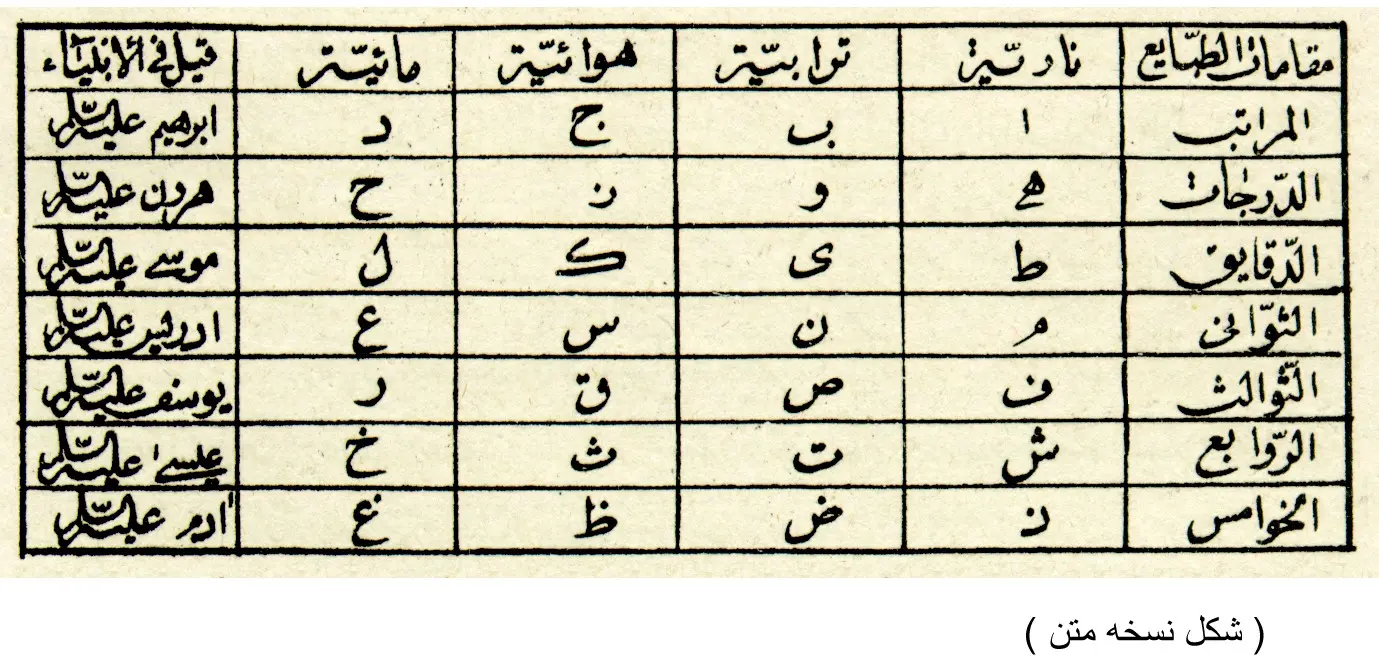 مقامات الطبایع ناریّة ترابیّة هوائیّة مائیّة قیل فی الانبیاء
المراتب ا ب ج د ابرهیم علیه السّلم
الدّرجات ه و ز ح هرون علیه السّلم
الدّقایق ط ی ک ل موسی علیه السّلم
الثّوانی م ن س ع ادریس علیه السّلم
الثّوالث ف ص ق ر یوسف علیه السّلم
الرّوابع ش ت ث خ عیسی علیه السّلم
الخوامس ذ ض ظ غ ادم علیه السّلم
( شکل نسخه متن )